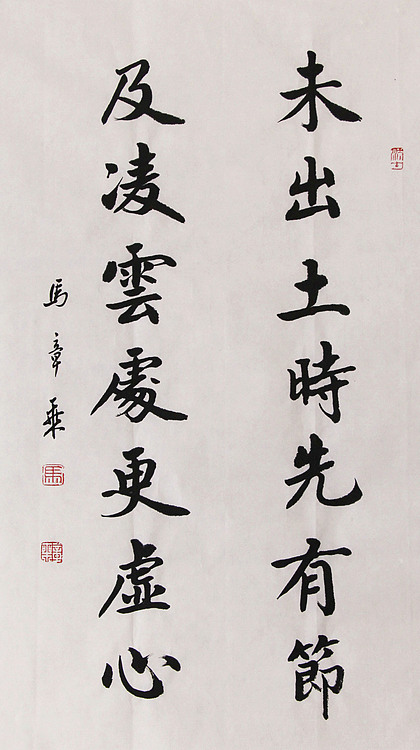 未出土時先有節
及凌雲處更虚心
馬章乘
馬